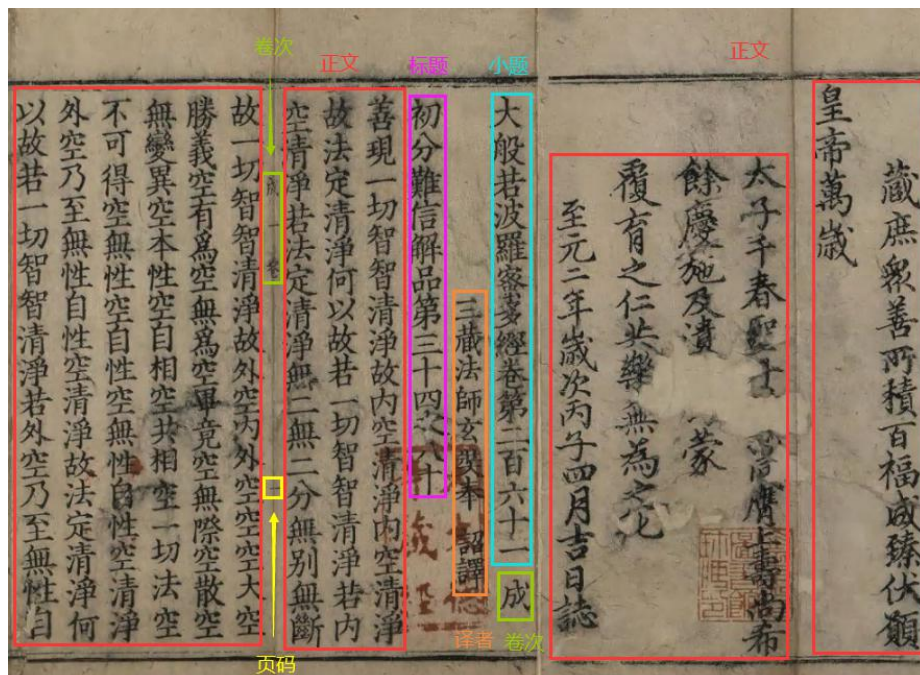 正文
藏庶衆善所積百福咸臻伏願
皇帝萬歲
太子千春聖
膺上壽尚希
餘慶施及遺
蒙
覆育之仁共樂無為之化
至元二年歲次丙子四月吉日誌
小题
大般若波羅蜜多經卷第二百六十一
成
卷次
三藏法師玄奘奉 詔譯
译者
标题
初分難信解品第三十四之八十
正文
善現一切智智清淨故内空清淨内空清淨
故法定清淨何以故若一切智智清淨若内
空清淨若法定清淨無二無二分無别無斷
卷次
成 一 卷
页码
故一切智智清淨故外空内外空空空大空
勝義空有為空無為空畢竟空無際空散空
無變異空本性空自相空共相空一切法空
不可得空無性空自性空無性自性空清淨
外空乃至無性自性空清淨故法定清淨何
以故若一切智智清淨若外空乃至無性自